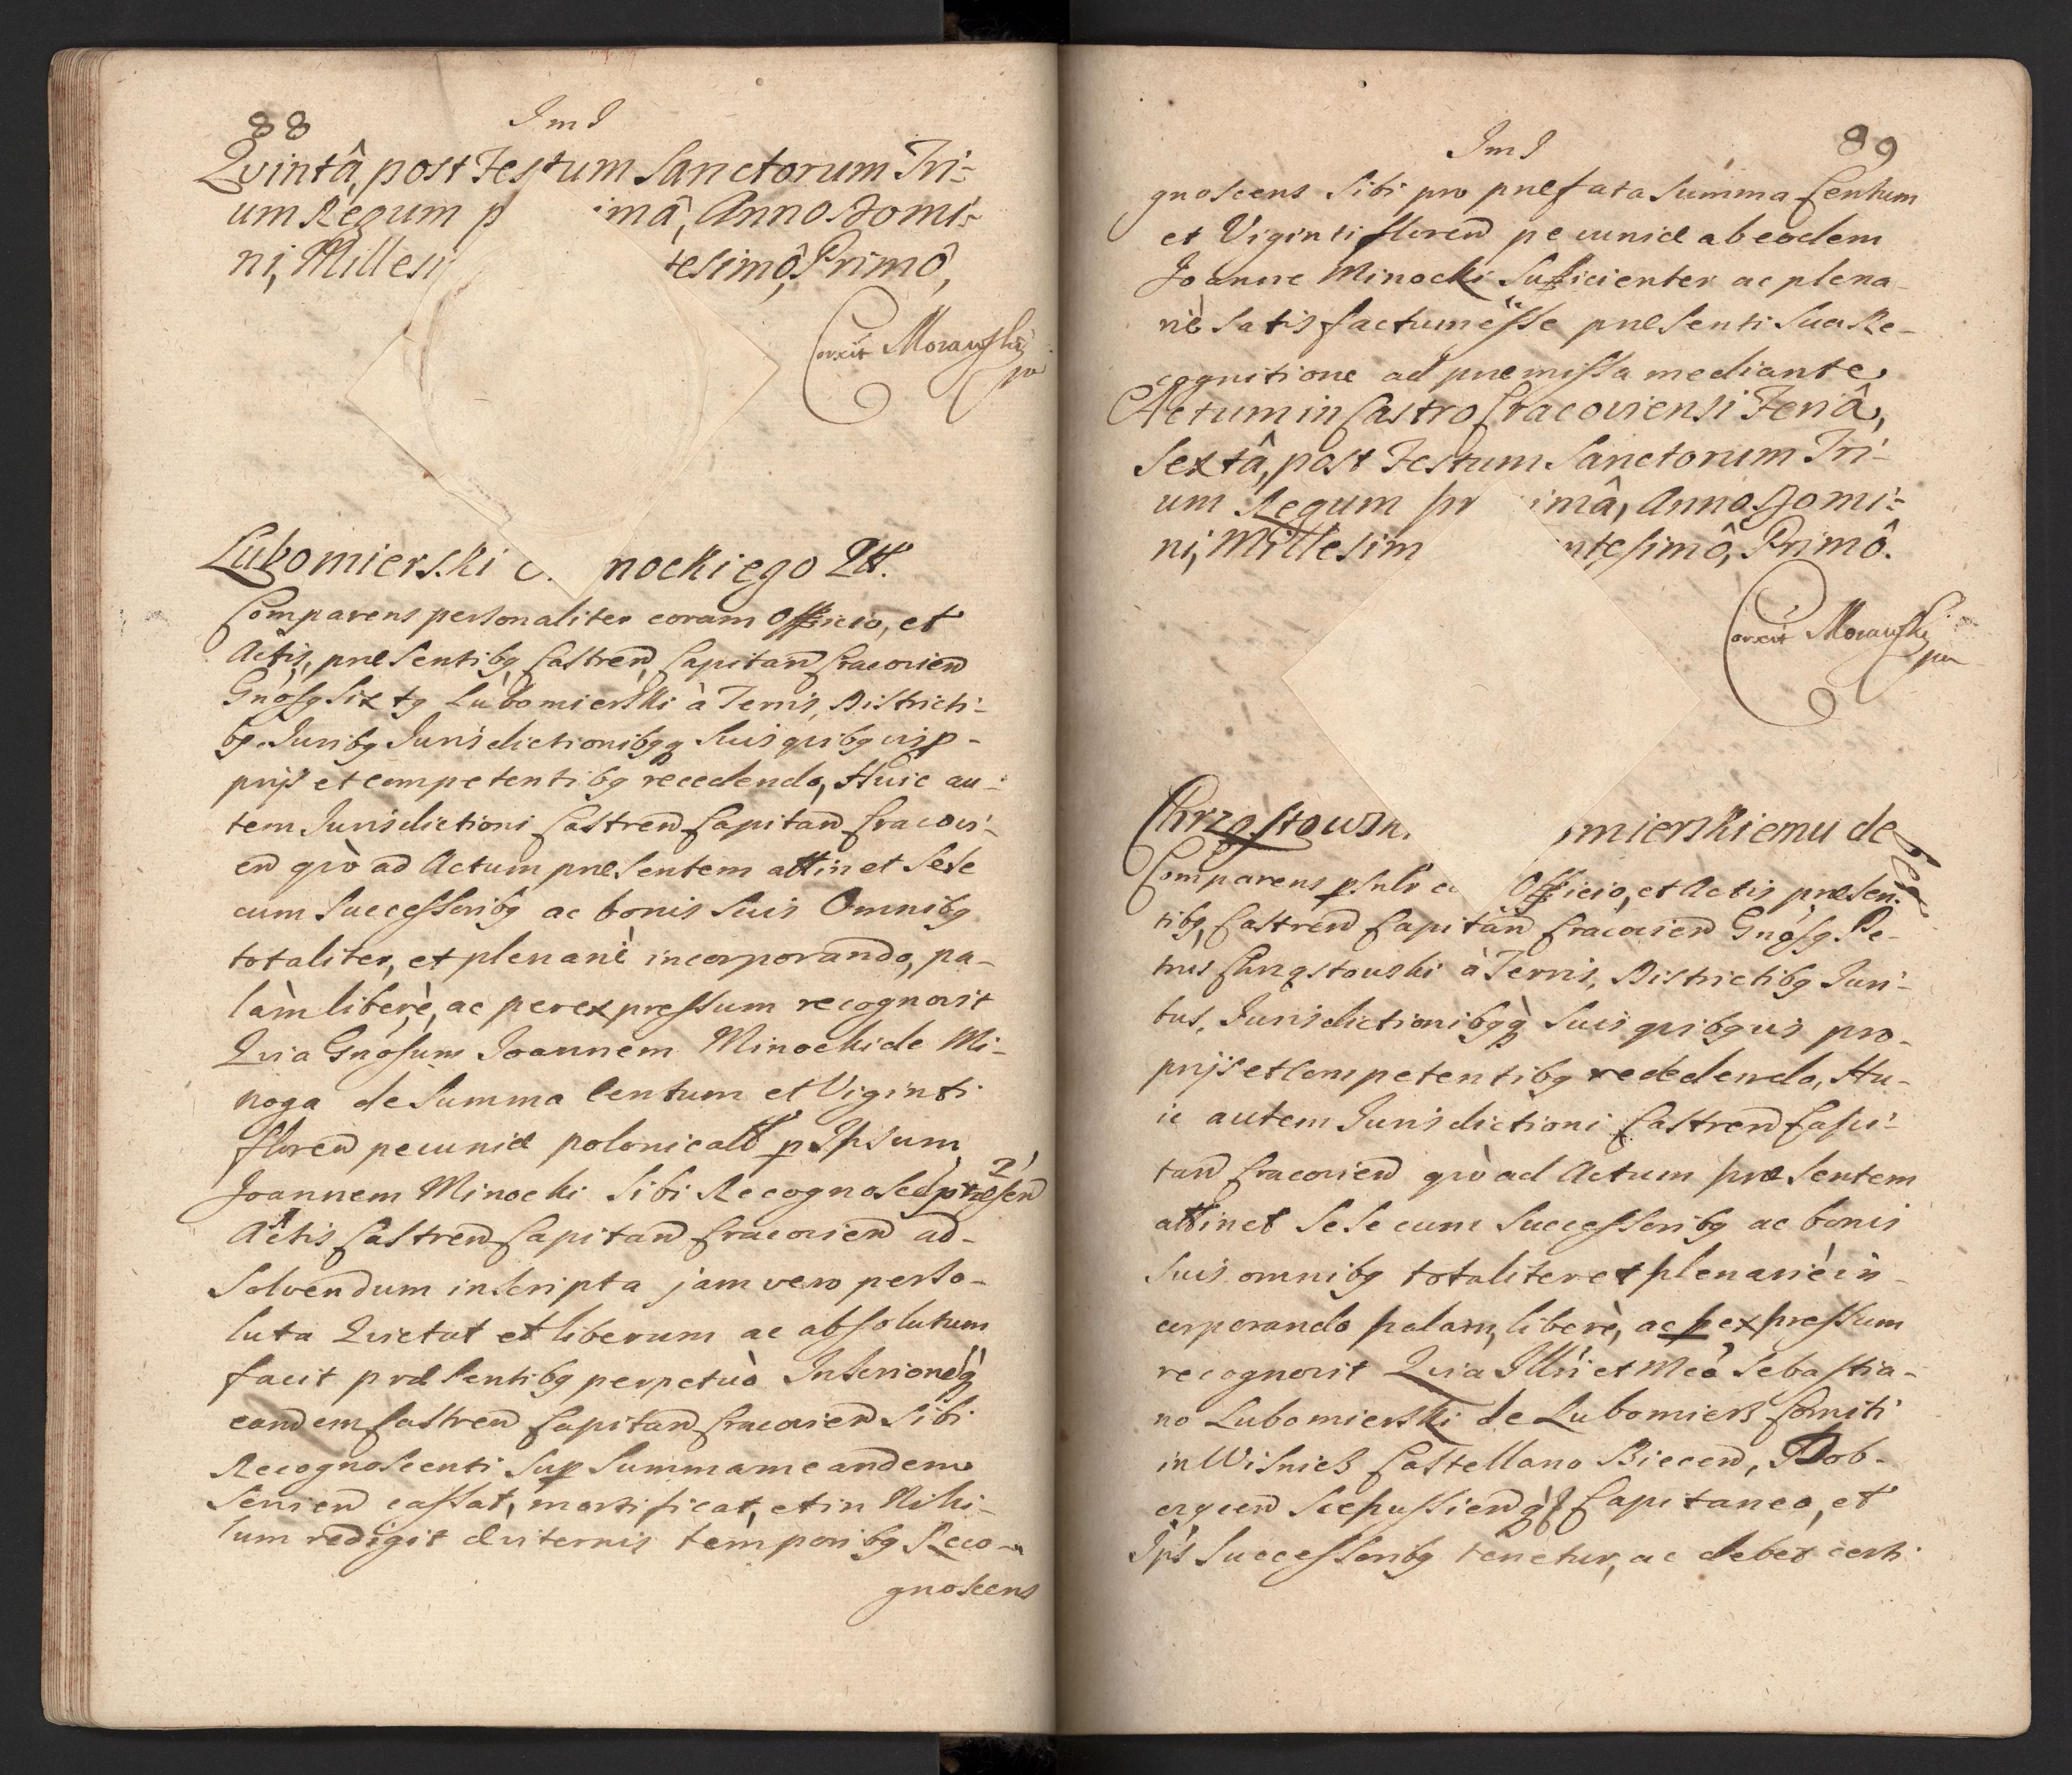 88
ImI
Qvintâ, post Festum Sanctorum Tri-
um Regum p imâ, Anno Domi-
ni, Millesi tesimô, Primô,
Corexit Morawski
Lubomierski nockiego Qtt.
Comparens personaliter coram Officio, et
Actis, præsentibg Castren Capitan Cracovien
Gnosg Sixtg Lubomierski à Terris, Districti-
bg Juribg Jurisdictionibgq suis qvibgvis p-
prijs et competentibg recedendo, Huic au-
tem Jurisdictioni Castren Capitan Cracovi-
en qvò ad Actum præsentem attinet Sese
cum Successoribg ac bonis suis Omnibg
totaliter, et plenariè incorporando, pa-
làm liberè, ac per expressum recognovit
Qvia Gnosum Joannem Minocki de Mi-
noga de Summa Centum et Viginti
floren pecuniæ polonicalt p Ipsum
Joannem Minocki sibi Recognoscen præsen
Actis Castren Capitan Cracovien ad-
solvendum inscripta jam vero perso-
luta Qvietat et liberum ac absolutum
facit præsentibg perpetuò Inscrionegq
eandem Castren Capitan Cracovien sibi
Recognoscenti sup summam eandem
servien cassat, mortificat, et in Nihi-
lum redigit æviternis temporibg Reco-
gnoscens
ImI
89
gnoscens sibi pro præfata Summa Centum
et Viginti floren pecuniæ ab eodem
Joanne Minocki Sufficienter ac plena-
riè satisfactum esse præsenti sua Re-
cognitione ad præmissa mediante
Actum in Castro Cracoviensi Feriâ,
Sextâ, post Festum Sanctorum Tri-
um Regum pr imâ, Anno Domi-
ni, Millesim ntesimô, Primô.
Corexit Morawski
Chrząstowsk mierskiemu debet
Comparens psnlr co Officio, et Actis præsen-
tibg, Castren Capitan Cracovien Gnosg Pe-
trus Chrząstowski à Terris, Districtibg Juri-
bus, Jurisdictionibgq suis qvibgvis pro-
prijs et Competentibg rededendo, Hu-
ic autem Jurisdictioni Castren Capi-
tan Cracovien qvò ad Actum præsentem
attinet Sese cum Successoribg ac bonis
suis omnibg totaliter et plenariè in-
corporando palam, liberè, ac p expressum
recognovit Qvia Illri et Mco Sebastia-
no Lubomierski de Lubomierz Comiti
in Wisnicz Castellano Biecen, Dob-
czycen Scepussienqz Capitaneo, et
Ips Successoribg tenetur, ac debet certi